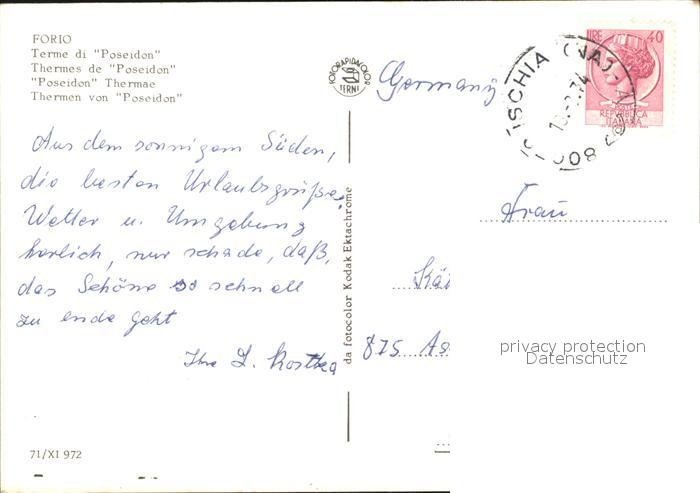 FORIO
Terme di "Poseidon"
Thermes de "Poseidon"
"Poseidon" Thermae
Thermen von "Poseidon"
FOTORAPIDACOLOR
TERNI
Germany
LIRE 40
POSTE
REPUBBLICA
ITALIANA
ISCHIA (NA)
Aus dem sonnigem Süden,
die besten Urlaubsgrüße.
Wetter u. Umgebung
herlich, nur schade, daß,
das Schöne so schnell
zu ende geht
Ihre L. Kostka
da fotocolor Kodak Ektachrome
Frau
Käi
875 As
privacy protection
Datenschutz
71/XI 972